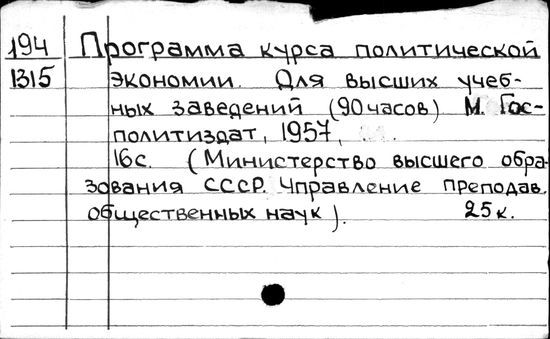 194 Программа курса политической
1315 экономии. Для высших учеб-
ных заведений (90 часов) М. Гос-
политиздат, 1957,
16с. (Министерство высшего обра-
зования СССР. Управление преподав.
общественных наук). 25к.